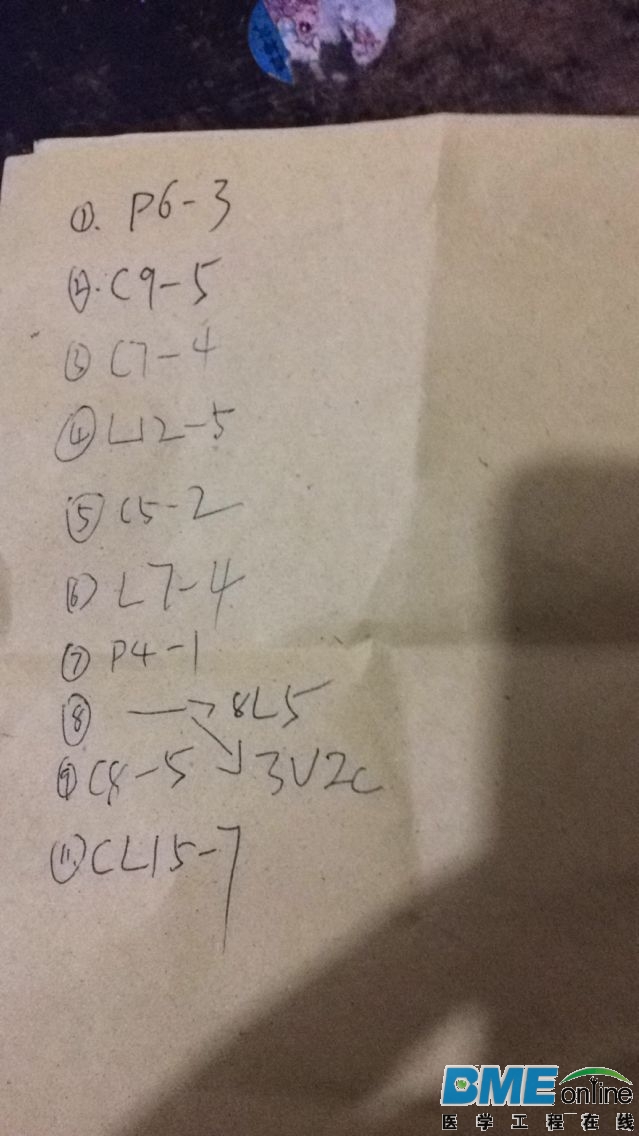 ①. P6-3
②. C9-5
③ C7-4
④ L12-5
⑤ C5-2
⑥ L7-4
⑦ P4-1
⑧ → 8L5
⑨ C8-5 ↘ 3V2c
⑪ CL15-7
BME online
医学工程在线